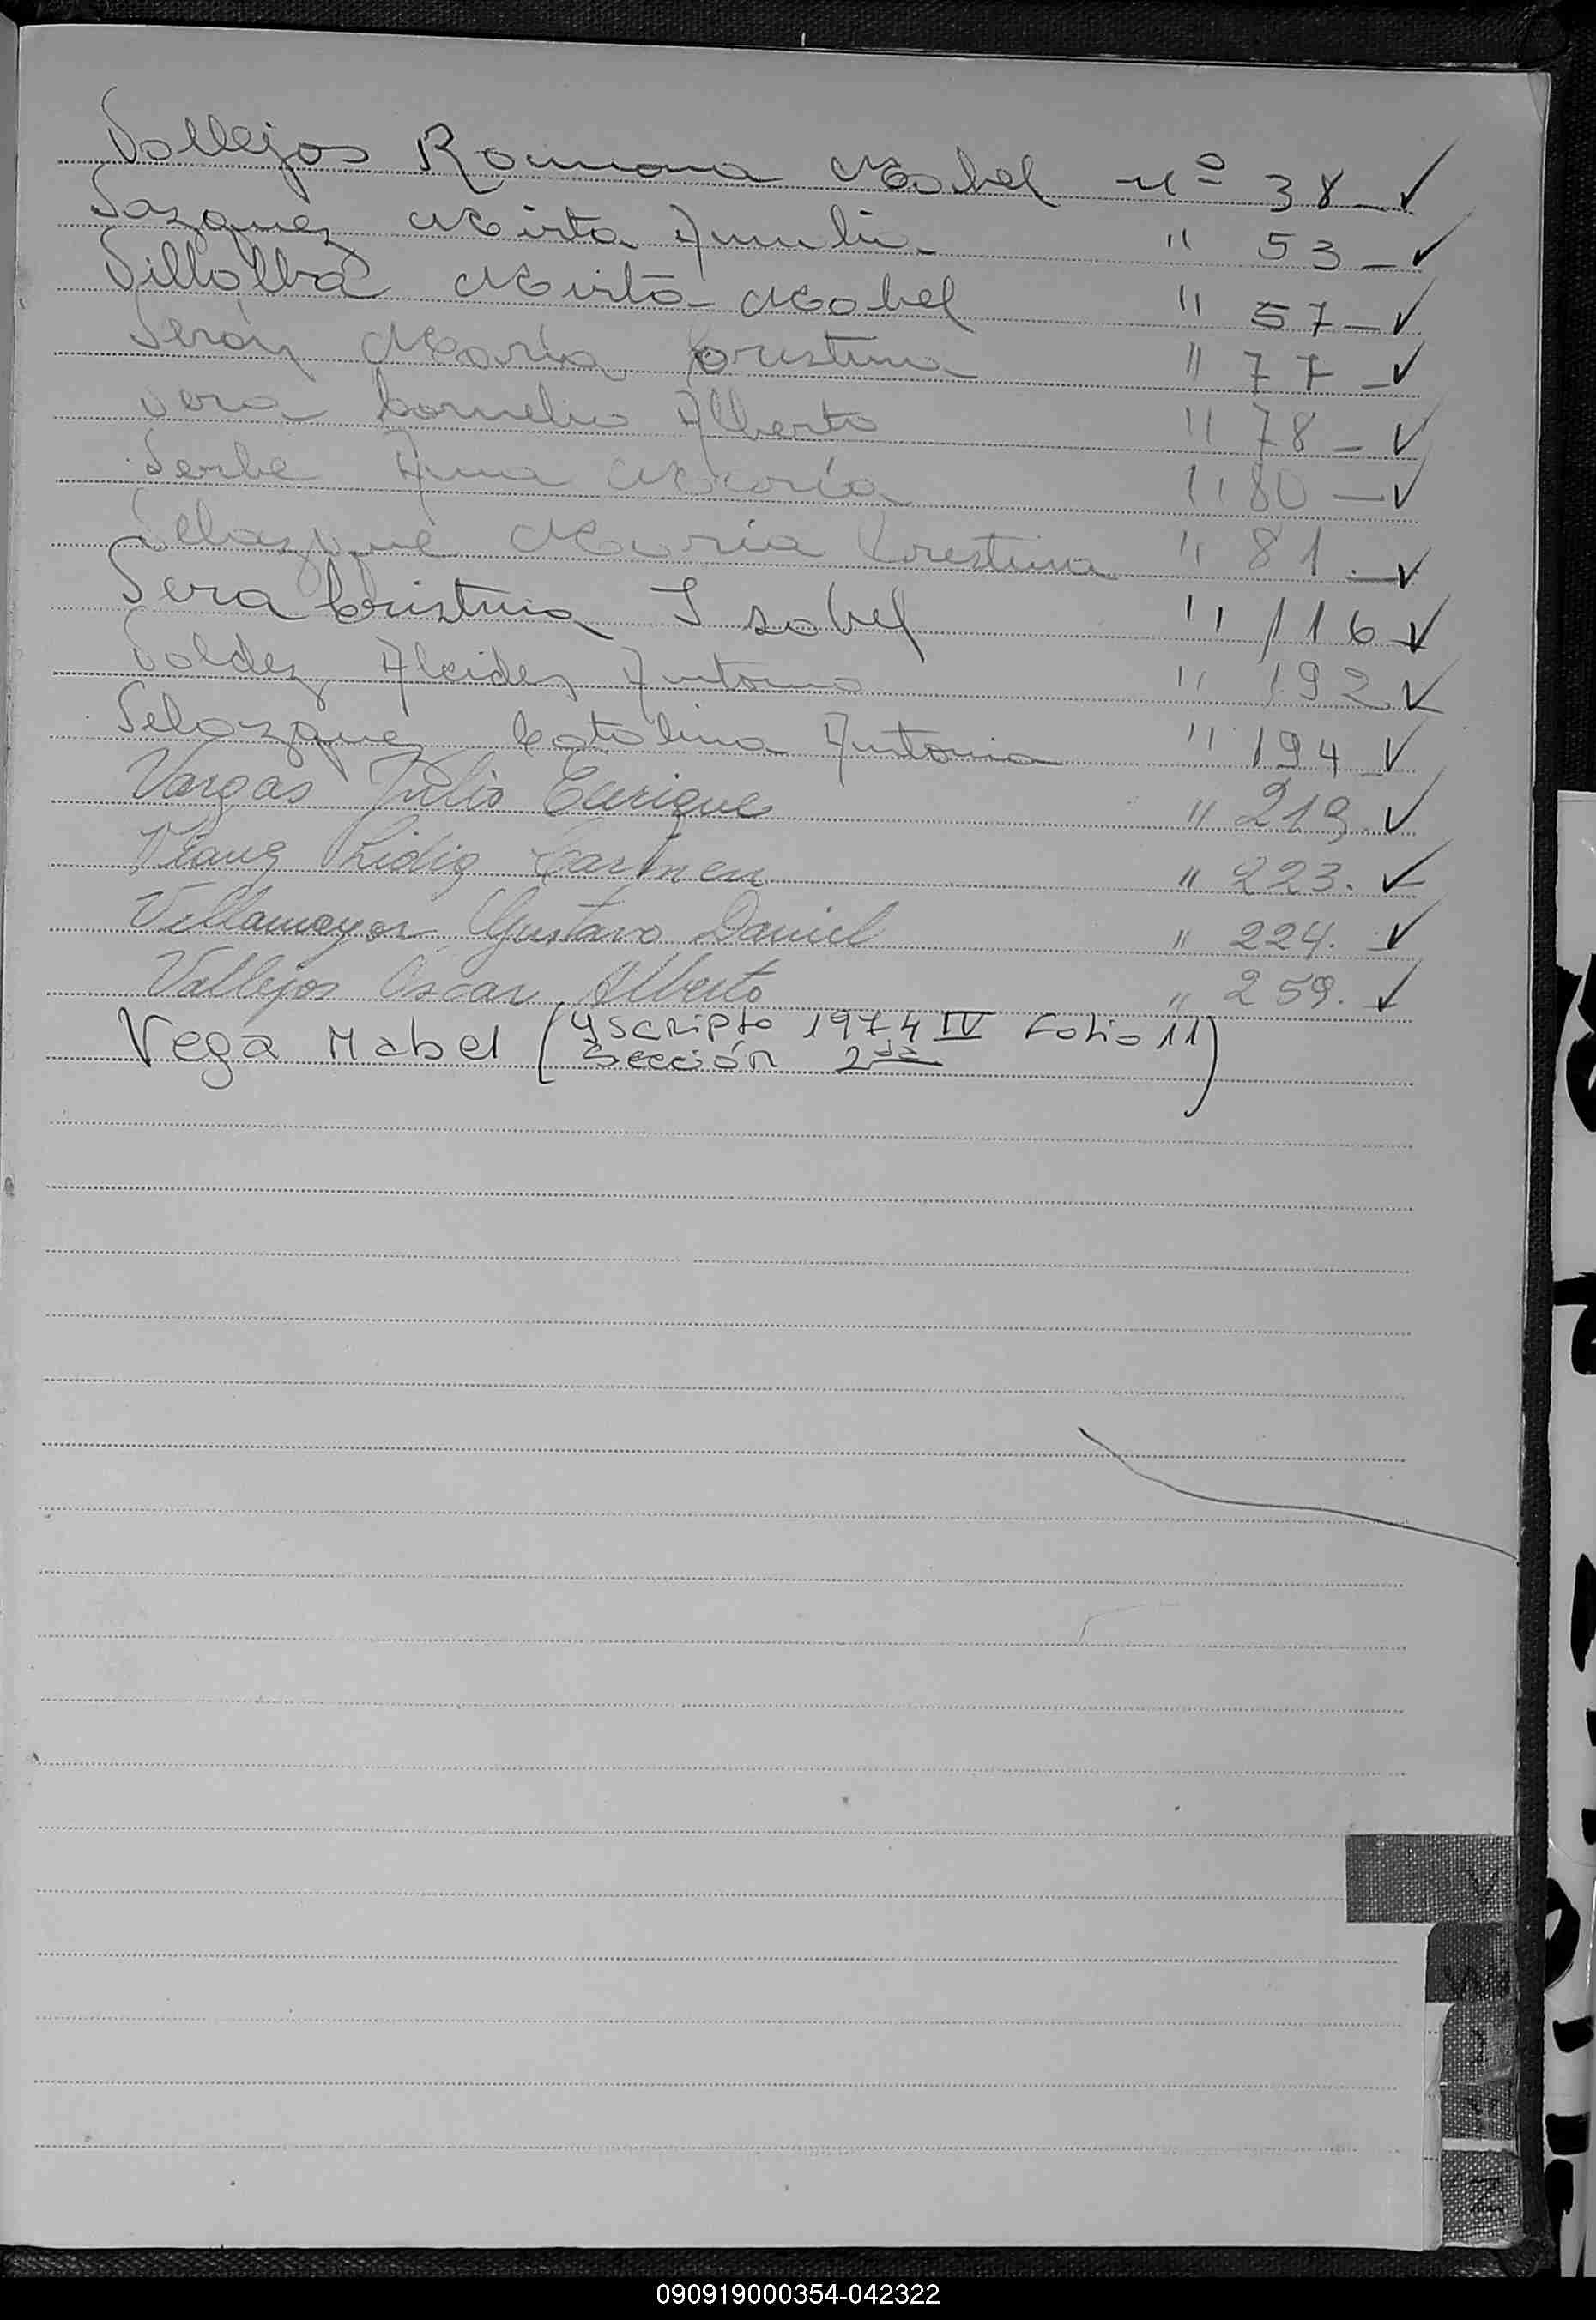 Vallejos Ramona Mabel Nº 38 - ✓
Vazquez Mirta Amalia " 53 - ✓
Villalba Mirta Mabel " 57 - ✓
Verón María Cristina " 77 - ✓
Vera Cornelio Alberto " 78 - ✓
Verbe Ana María " 80 - ✓
Velazque María Cristina " 81 - ✓
Vera Cristina Isabel " 116 ✓
Valdez Alcides Antonio " 192 ✓
Velazquez Catalina Antonia " 194 ✓
Vargas Julio Enrique " 219. ✓
Lidia Carmen " 223. ✓
Villamayor Gustavo Daniel " 224. ✓
Vallejos Oscar Alberto " 259. ✓
Vega Mabel (yscripto 1974 IV Folio 11)
Sección 2da
V
W
Z
090919000354-042322